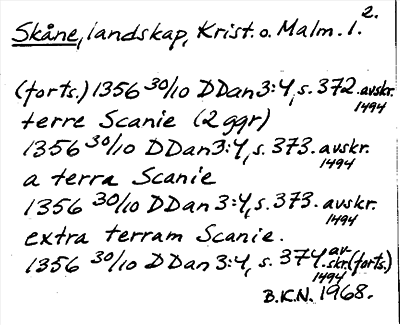 2.
Skåne, landskap, Krist. o. Malm. l.
(forts.) 1356 30/10 DDan 3:4, s. 372. avskr. 1494
terre Scanie (2 ggr)
1356 30/10 DDan 3:4, s. 373. avskr. 1494
a terra Scanie
1356 30/10 DDan 3:4, s. 373. avskr. 1494
extra terram Scanie.
1356 30/10 DDan 3:4, s. 374. av-skr. 1494 (forts.)
B.K.N. 1968.